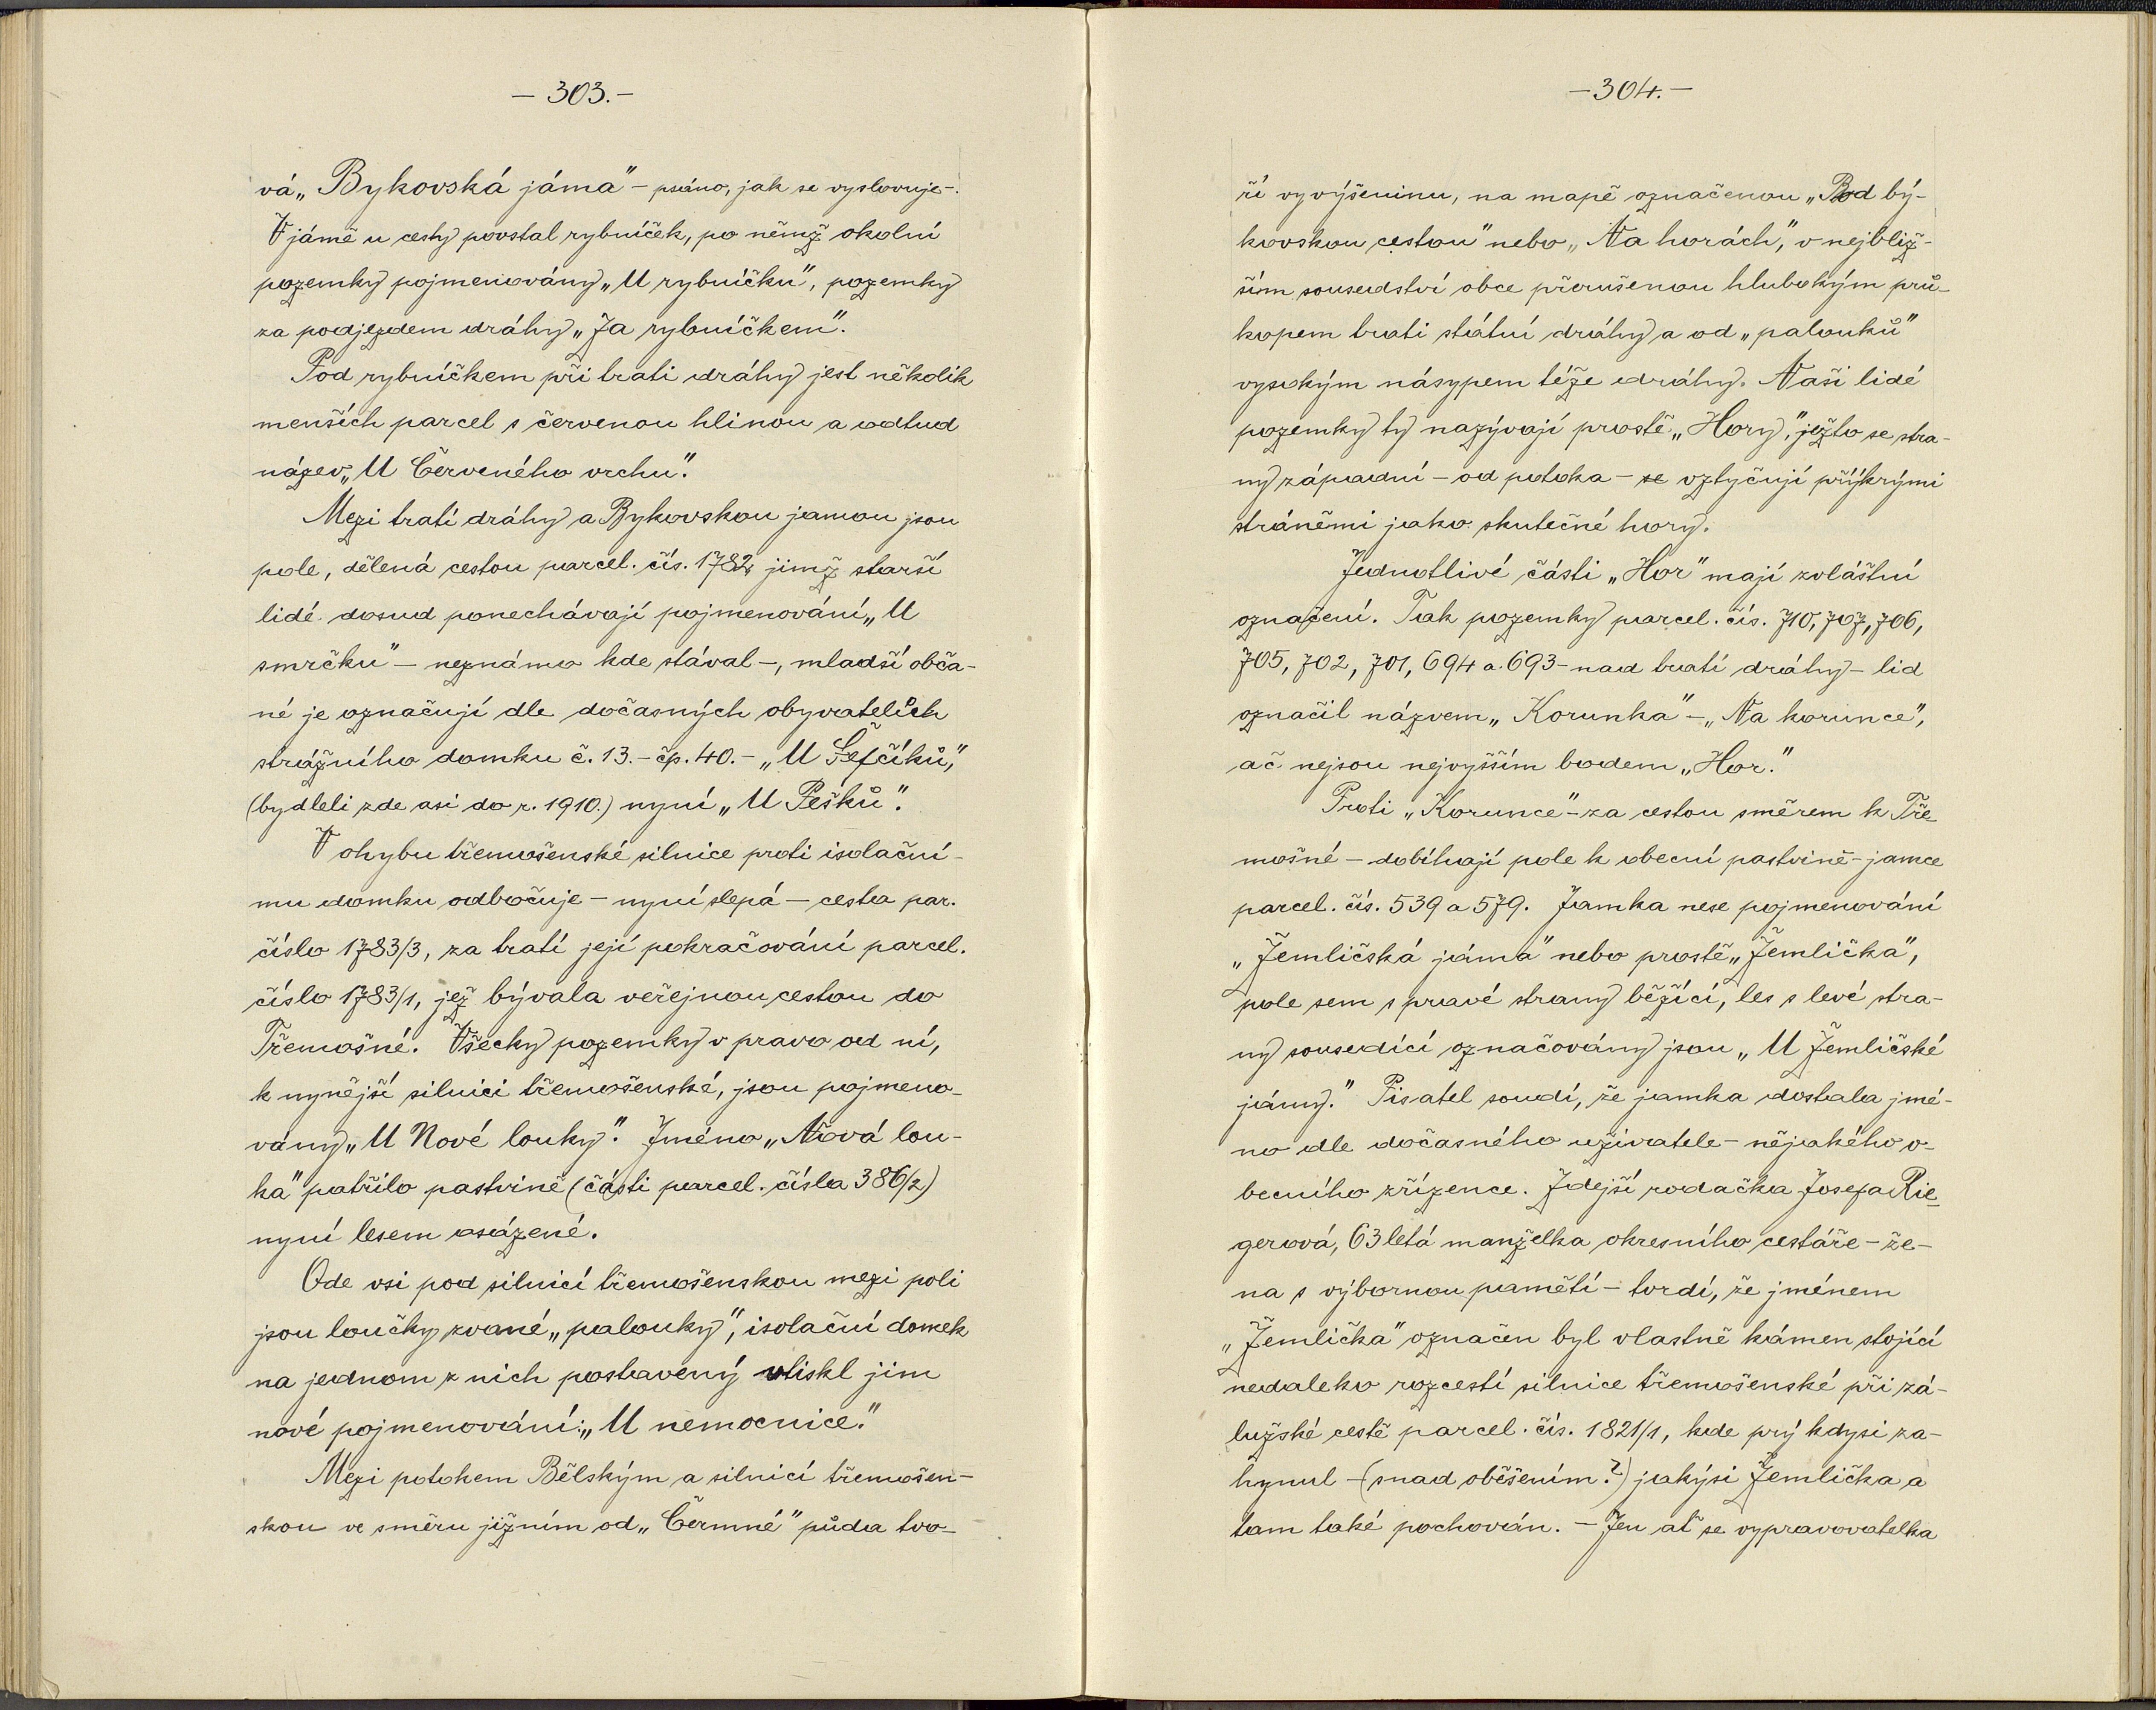 — 303. —
vá „Bykovská jáma" – psáno, jak se vyslovuje –.
V jámě u cesty povstal rybníček, po němž okolní
pozemky pojmenovány „U rybníčku", pozemky
za podjezdem dráhy „Za rybníčkem".
Pod rybníčkem při trati dráhy jest několik
menších parcel s červenou hlinou a odtud
název „U Červeného vrchu".
Mezi tratí dráhy a Bykovskou jamou jsou
pole, dělená cestou parcel. čís. 1782, jimž starší
lidé dosud ponechávají pojmenování „U
smrčku" – neznámo kde stával –, mladší obča-
né je označují dle dočasných obyvatelích
strážního domku č. 13. – čp. 40. – „U Šefčíků",
(bydleli zde asi do r. 1910.) nyní „U Pešků".
V ohybu třemošenské silnice proti isolační-
mu domku odbočuje – nyní slepá – cesta par.
číslo 1783/3, za tratí její pokračování parcel.
číslo 1783/1, jež bývala veřejnou cestou do
Třemošné. Všecky pozemky v pravo od ní,
k nynější silnici třemošenské, jsou pojmeno-
vány „U Nové louky". Jméno „Nová lou-
ka" patřilo pastvině (části parcel. čísla 386/2)
nyní lesem osázené.
Ode vsi pod silnicí třemošenskou mezi poli
jsou loučky zvané „palouky", isolační domek
na jednom z nich postavený vtiskl jim
nové pojmenování: „U nemocnice."
Mezi potokem Bělským a silnicí třemošen-
skou ve směru jižním od „Čermné" půda tvo-
— 304. —
ří vyvýšeninu, na mapě označenou „Pod bý-
kovskou cestou" nebo „Na horách", v nejbliž-
ším sousedství obce přerušenou hlubokým prů-
kopem trati státní dráhy a od „palouků"
vysokým násypem téže dráhy. Naši lidé
pozemky ty nazývají prostě „Hory", ježto se stra-
ny západní – od potoka – se vztyčují příkrými
stráněmi jako skutečné hory.
Jednotlivé části „Hor" mají zvláštní
označení. Tak pozemky parcel. čís. 710, 707, 706,
705, 702, 701, 694 a 693 – nad tratí dráhy – lid
označil názvem „Korunka" – „Na korunce",
ač nejsou nejvyšším bodem „Hor."
Proti „Korunce" – za cestou směrem k Tře
mošné – dobíhají pole k obecní pastvině – jamce
parcel. čís. 539 a 579. Jamka nese pojmenování
„Žemličská jáma" nebo prostě „Žemlička",
pole sem s pravé strany běžící, les s levé stra-
ny sousedící označovány jsou „U Žemličské
jámy." Pisatel soudí, že jamka dostala jmé-
no dle dočasného uživatele – nějakého o-
becního zřízence. Zdejší rodačka Josefa Rie-
gerová, 63 letá manželka okresního cestáře – že-
na s výbornou pamětí – tvrdí, že jménem
„Žemlička" označen byl vlastně kámen stojící
nedaleko rozcestí silnice třemošenské při zá-
lužské cestě parcel. čís. 1821/1, kde prý kdysi za-
hynul – (snad oběšením?) jakýsi Žemlička a
tam také pochován. – Jen ať se vypravovatelka